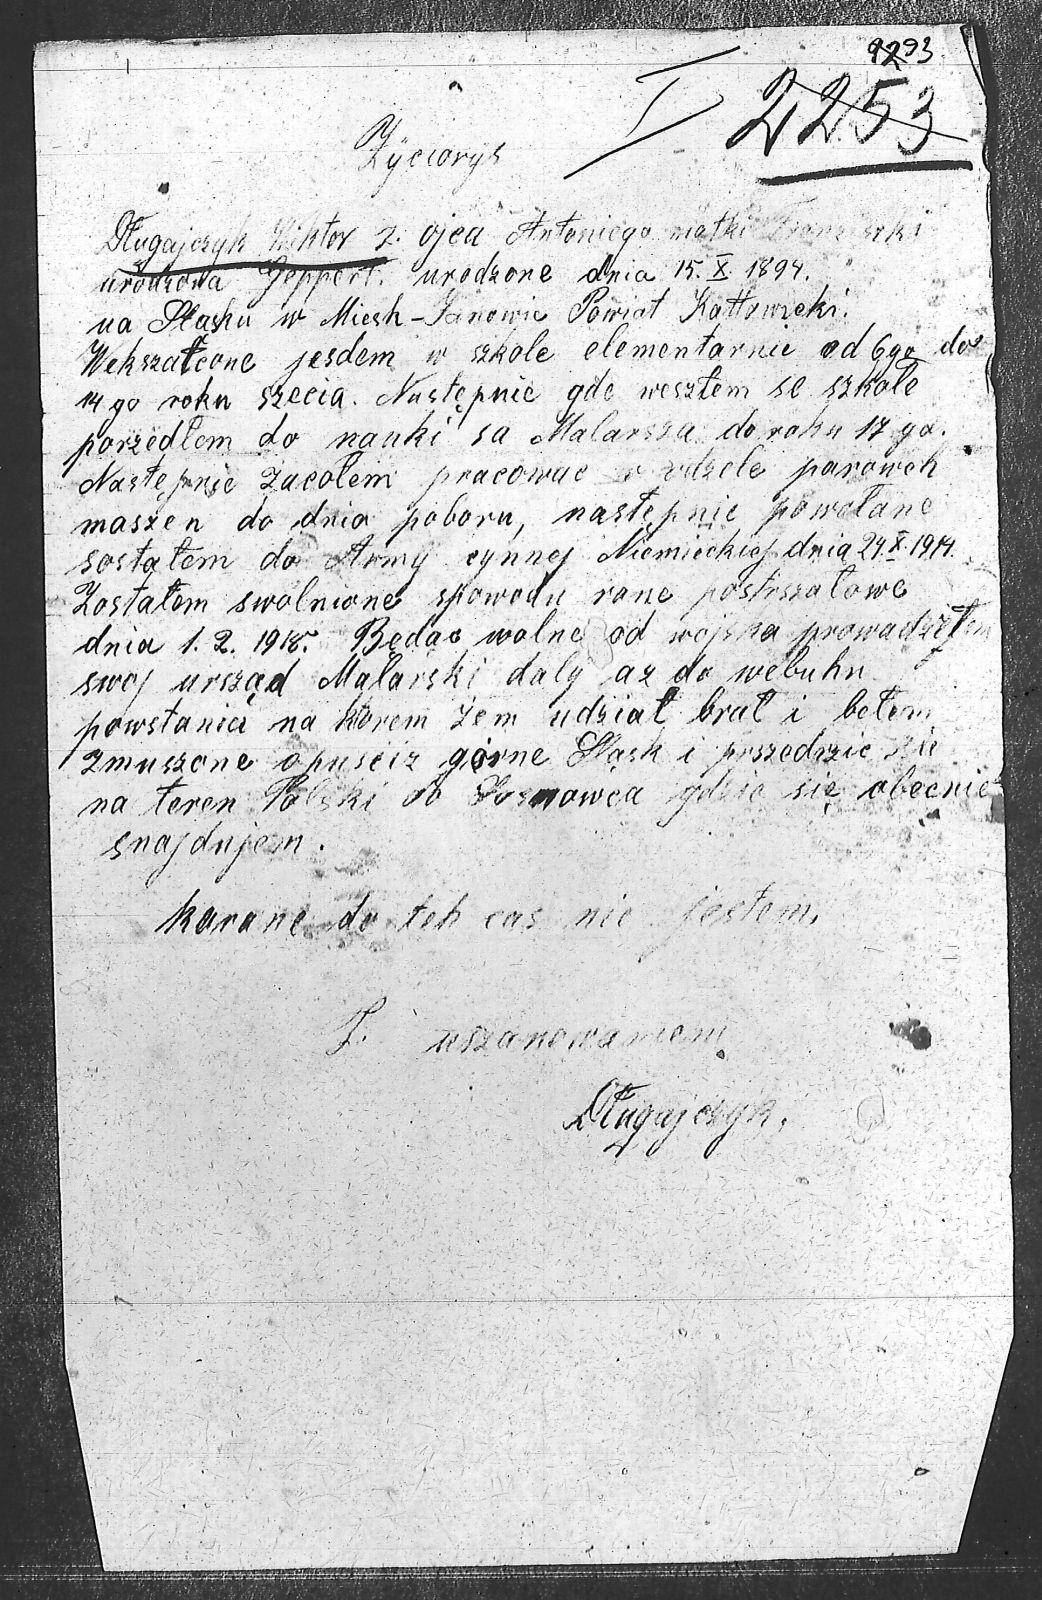 9293
I 2253
Życiorys
Długajczyk Wiktor z. ojca Antoniego matki Franciszki
urodzona Geppert. urodzone dnia 15. X. 1894.
na Sląsku w Miesh-Janowie Powiat Kattowicki.
Wekszałcone jesdem w szkole elementarnie od 6go do
14 go roku szecia. Następnie gde wesztem se szkole
porzedłem do nauki sa Malarsza do roku 17 go.
Następnie zacołem pracowac w zdzele parowch
maszen do dnia poboru, następnie powołane
sostałem do Army cynnej Niemieckiej dnia 24. X. 1914.
Zostałem swolnione spowodu rane postrszałowe
dnia 1. 2. 1918. Będąc wolne od wojska prowadzełem
swoj ursząd Malarski daly az do webuhu
powstania na ktorem zem udział brał i bełem
zmuszone opusciz gorne Sląsk i prszedrzic się
na teren Polski do Sosnowca gdzie się obecnie
snajdujem.
karane do teh cas nie jestem.
Z. uszanowaniem
Długajczyk.